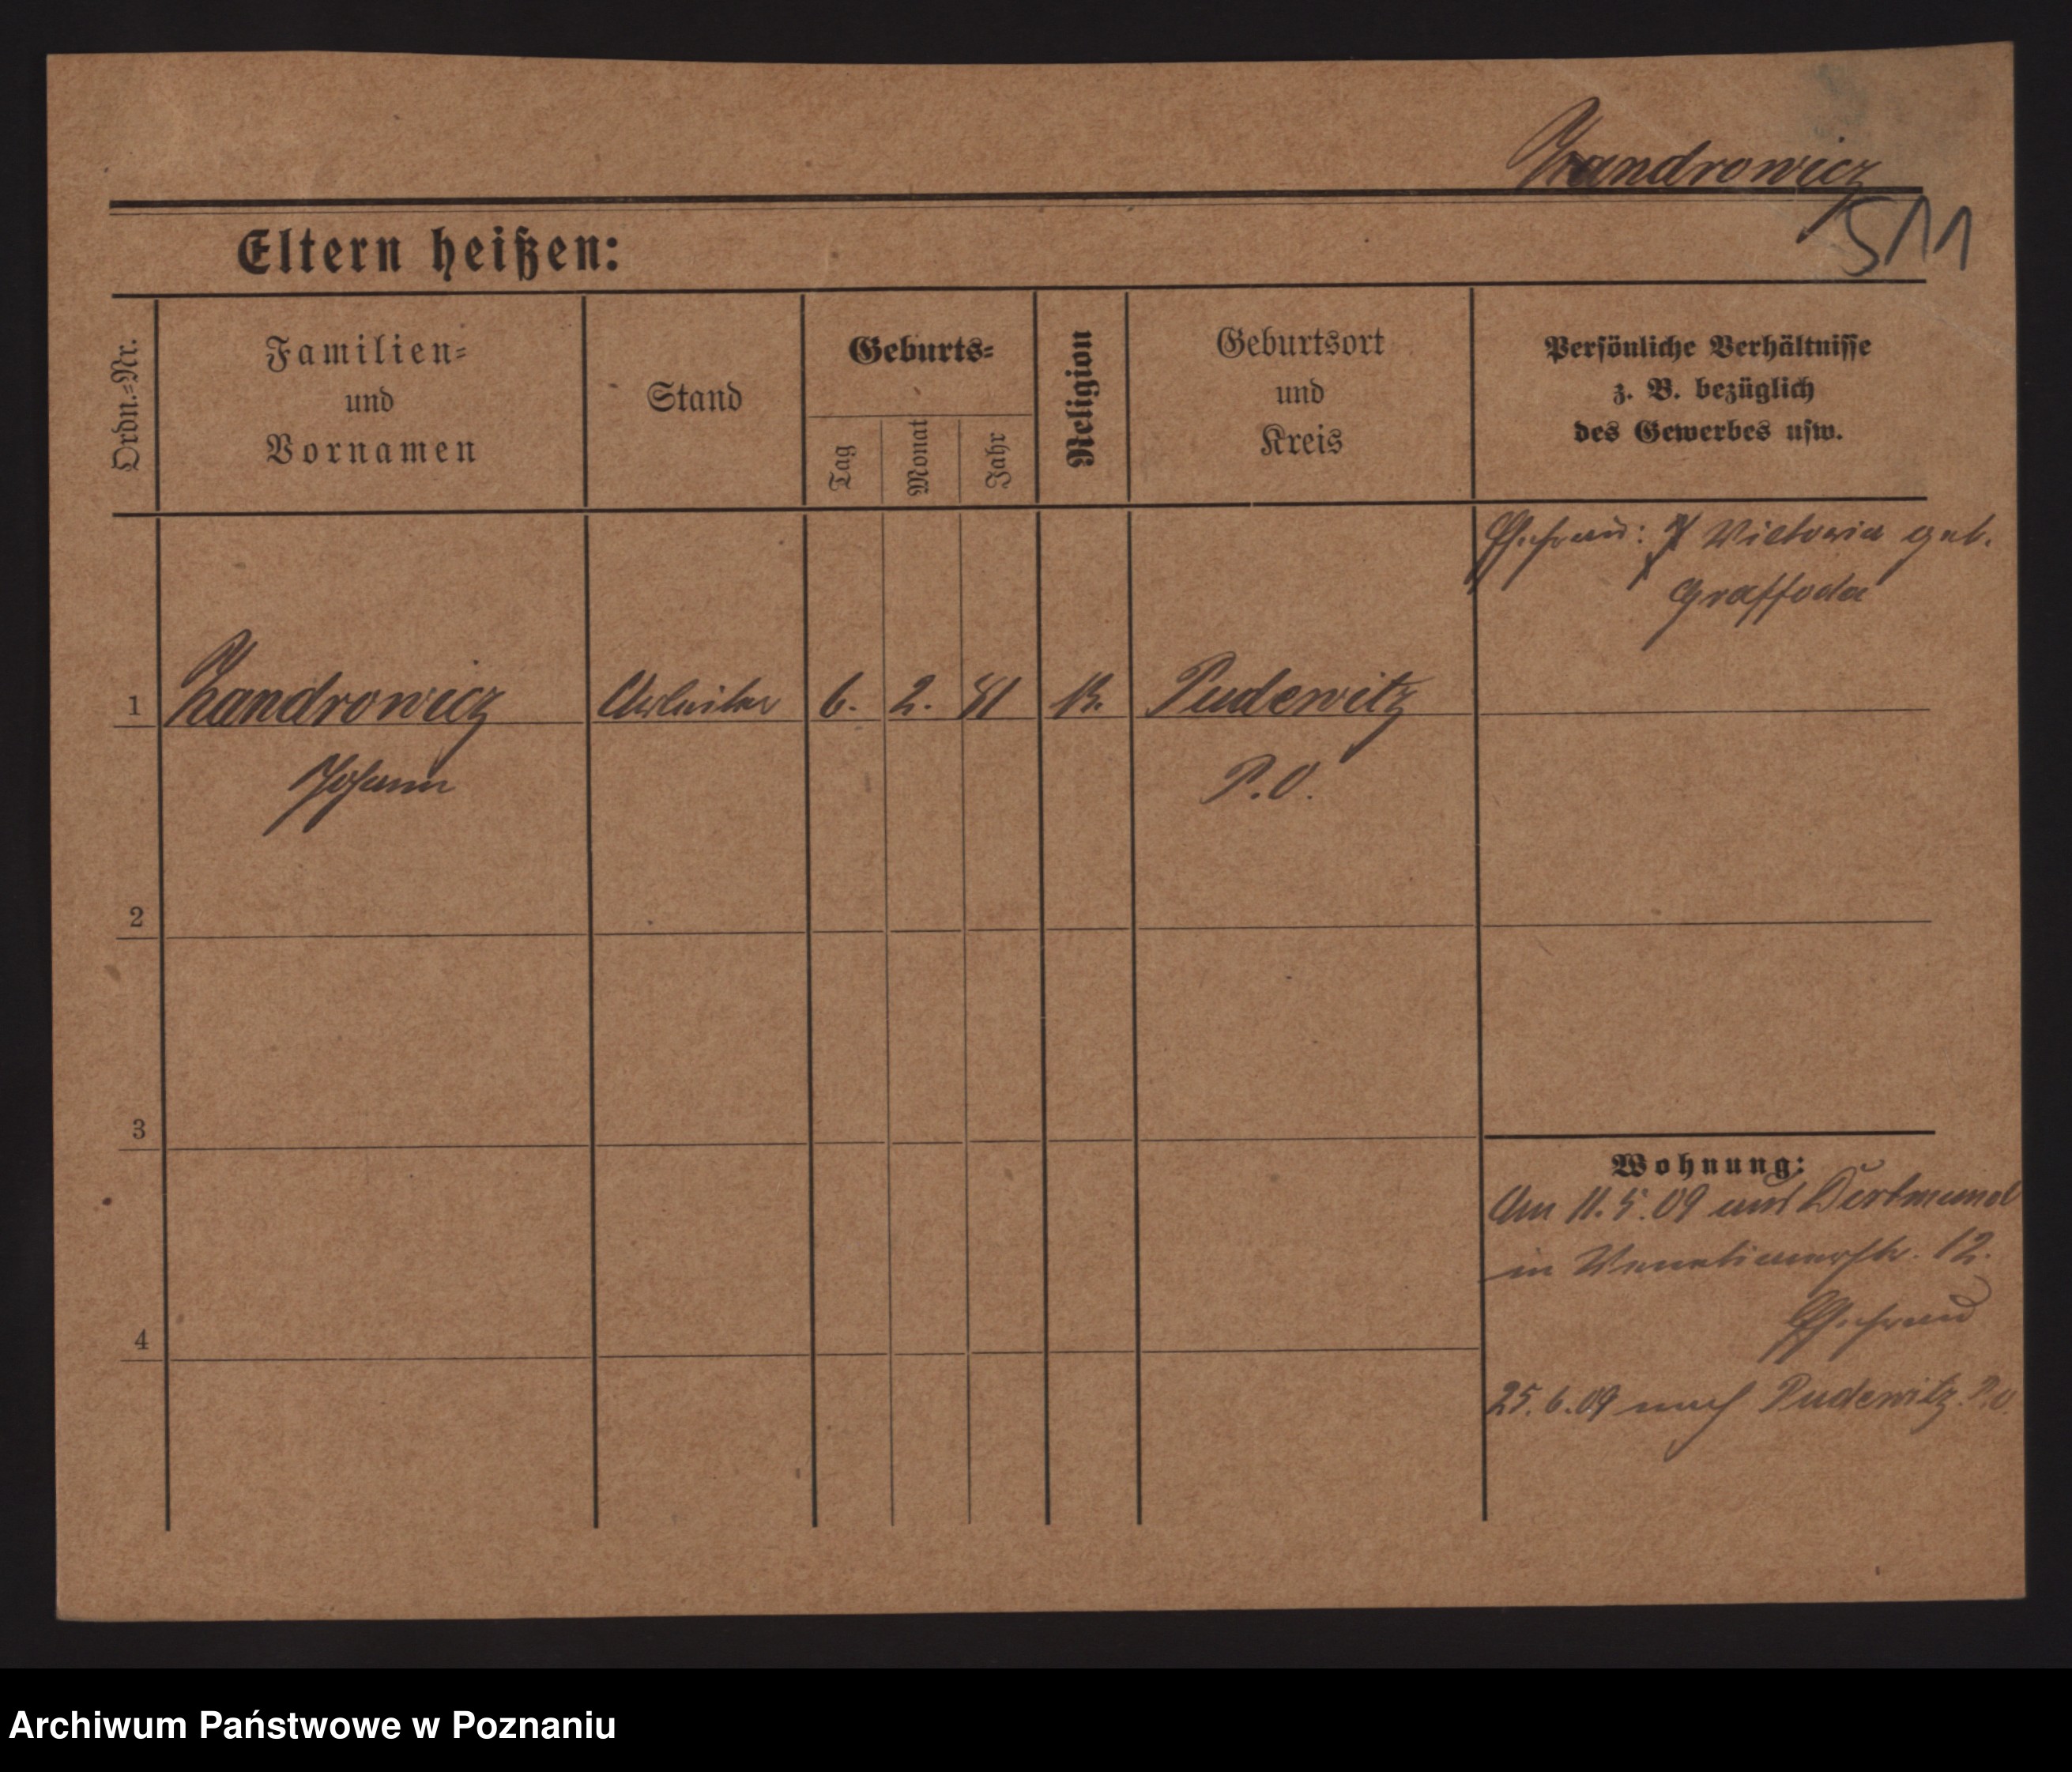 Zandrowicz
511
Eltern heißen:
Ordn.-Nr.
Familien-
und
Vornamen
Stand
Geburts-
Tag
Monat
Jahr
Religion
Geburtsort
und
Kreis
Persönliche Verhältnisse
z. B. bezüglich
des Gewerbes usw.
Ehefrau: Victoria geb.
1 Zandrowicz Arbeiter 6. 2. 81 K. Pudewitz
Johann P.O.
2
3
4
Wohnung:
Am 11.5.09 aus Dortmund
in Venetianerstr. 12.
Ehefrau
25.6.09 nach Pudewitz P.O.
Archiwum Państwowe w Poznaniu